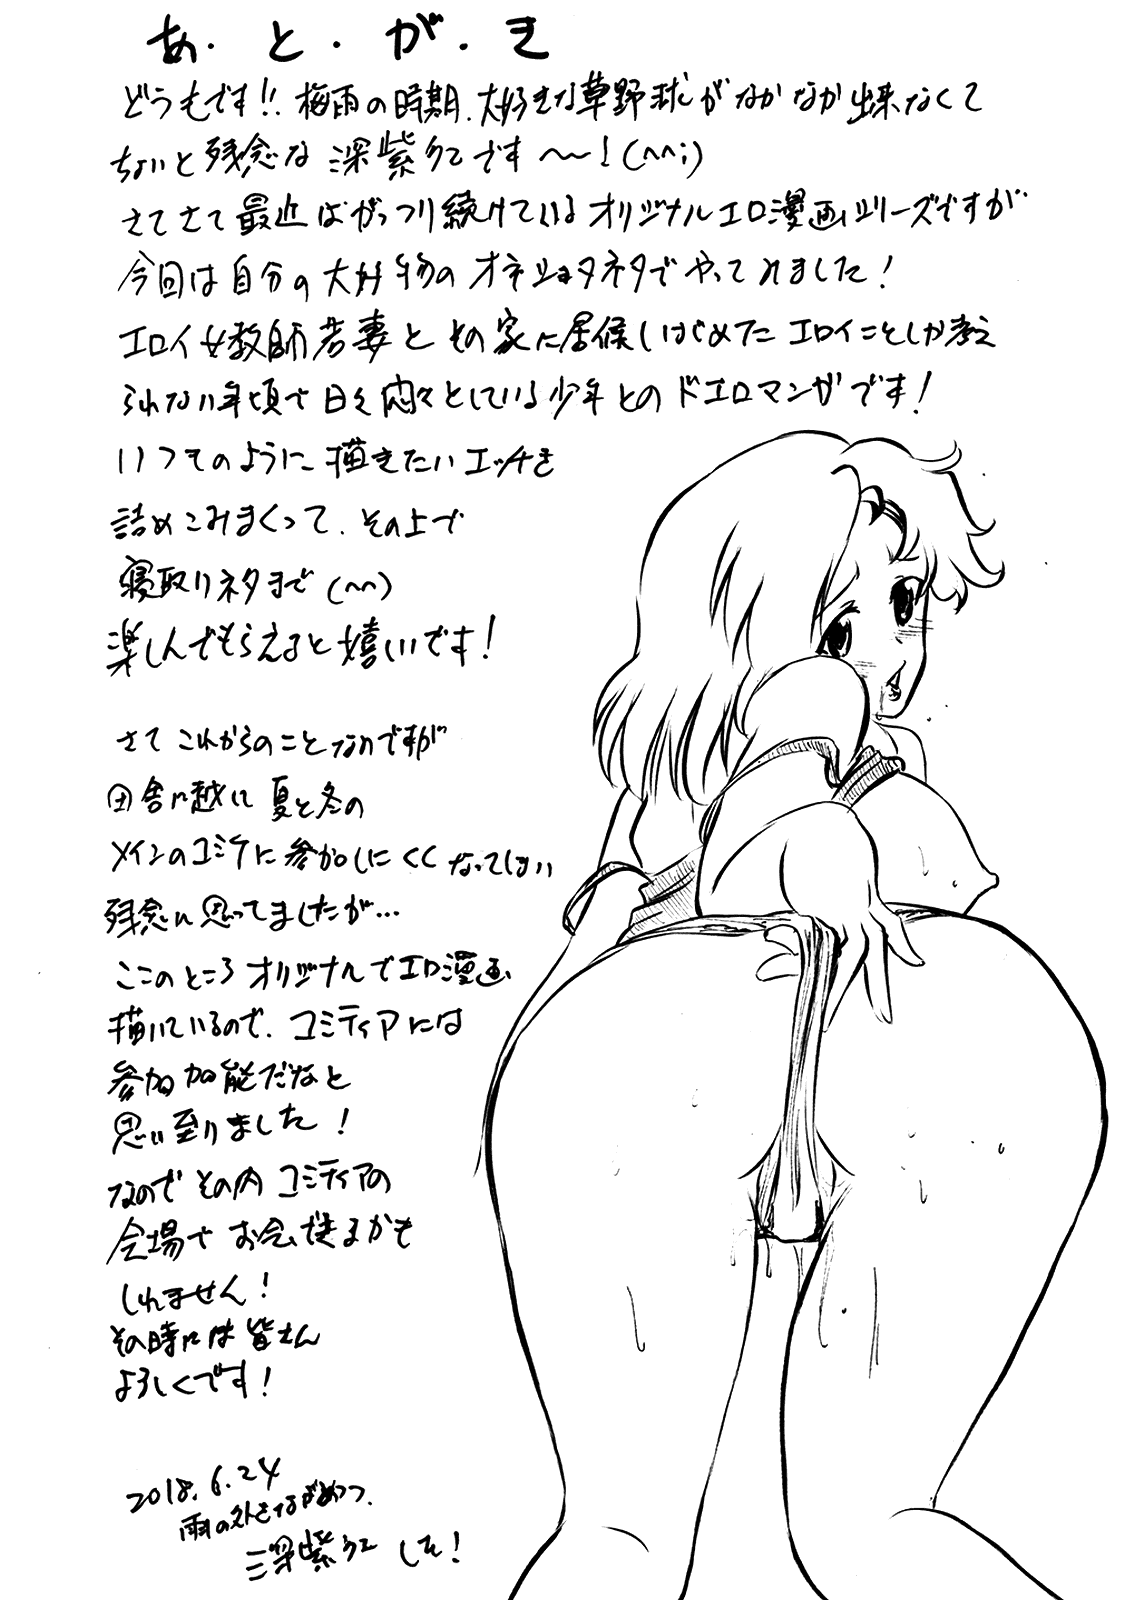 あ・と・が・き
どうもです!!梅雨の時期、大好きな草野球がなかなか出来なくて
ちょいと残念な深紫です〜!(^^;)
さてさて最近はがっつり続けているオリジナルエロ漫画シリーズですが
今回は自分の大好物のオネショタネタでやってみました!
エロイ女教師若妻とその家に居候しはじめたエロイことしか考え
られない年頃で日々悶々としている少年とのドエロマンガです!
いつものように描きたいエッチを
詰めこみまくって、その上で
寝取りネタまで(^^)
楽しんでもらえると嬉しいです!
さてこれからのことなのですが
田舎に越して夏と冬の
メインのコミケに参加しにくくなってしまい
残念に思ってましたが…
ここのところオリジナルでエロ漫画
描いているので、コミティアには
参加可能だなと
思い至りました!
なのでその内コミティアの
会場でお会いできるかも
しれません!
その時には皆さん
よろしくです!
2018.6.24
雨の外をながめつつ、
深紫 しそ!